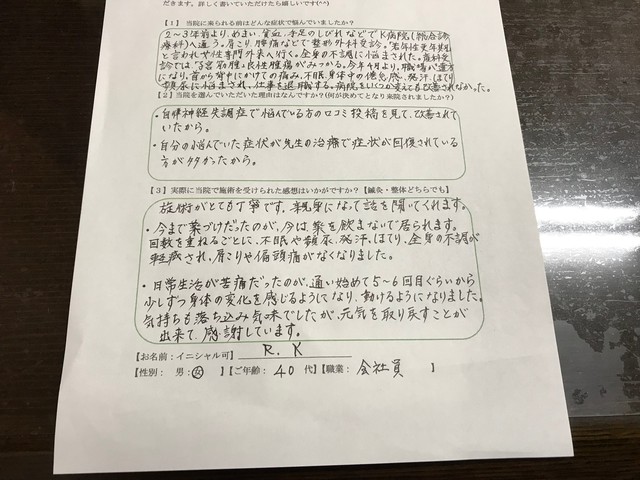 だきます。詳しく書いていただけたら嬉しいです(^^)
【1】当院に来られる前はどんな症状で悩んでいましたか？
2〜3年前より、めまい、貧血、手足のしびれなどでK病院(総合診
療科)へ通う。肩こり、腰痛などで整形外科受診。「若年性更年期」
と言われ女性専門外来へ行く。全身の不調に悩まされた。産婦受
診では「子宮筋腫」良性腫瘍がみつかる。今年4月より、職場が
になり、首から背中にかけての痛み、不眠、身体中の倦怠感、発汗、ほてり
頻尿に悩まされ、仕事を退職する。病院をいくつか変えても改善されなかった。
【2】当院を選んでいただいた理由はなんですか？(何が決めてとなり来院されましたか？)
・自律神経失調症で悩んでいる方の口コミ投稿を見て、改善されて
いたから。
・自分の悩んでいた症状が先生の治療で症状が回復されている
方が多かったから。
【3】実際に当院で施術を受けられた感想はいかがですか？【鍼灸・整体どちらでも】
施術がとても丁寧です。親身になって話を聞いてくれます。
・今まで薬づけだったのが、今は薬を飲まないで居られます。
回数を重ねるごとに、不眠や頻尿、発汗、ほてり、全身の不調が
軽減され、肩こりや偏頭痛がなくなりました。
・日常生活が苦痛だったのが、通い始めて5〜6回目ぐらいから
少しずつ身体の変化を感じるようになり、動けるようになりました。
気持ちも落ち込み気味でしたが、元気を取り戻すことが
出来て、感謝しています。
【お名前：イニシャル可】 R. K
【性別： 男：女】【ご年齢： 40 代】【職業： 会社員 】